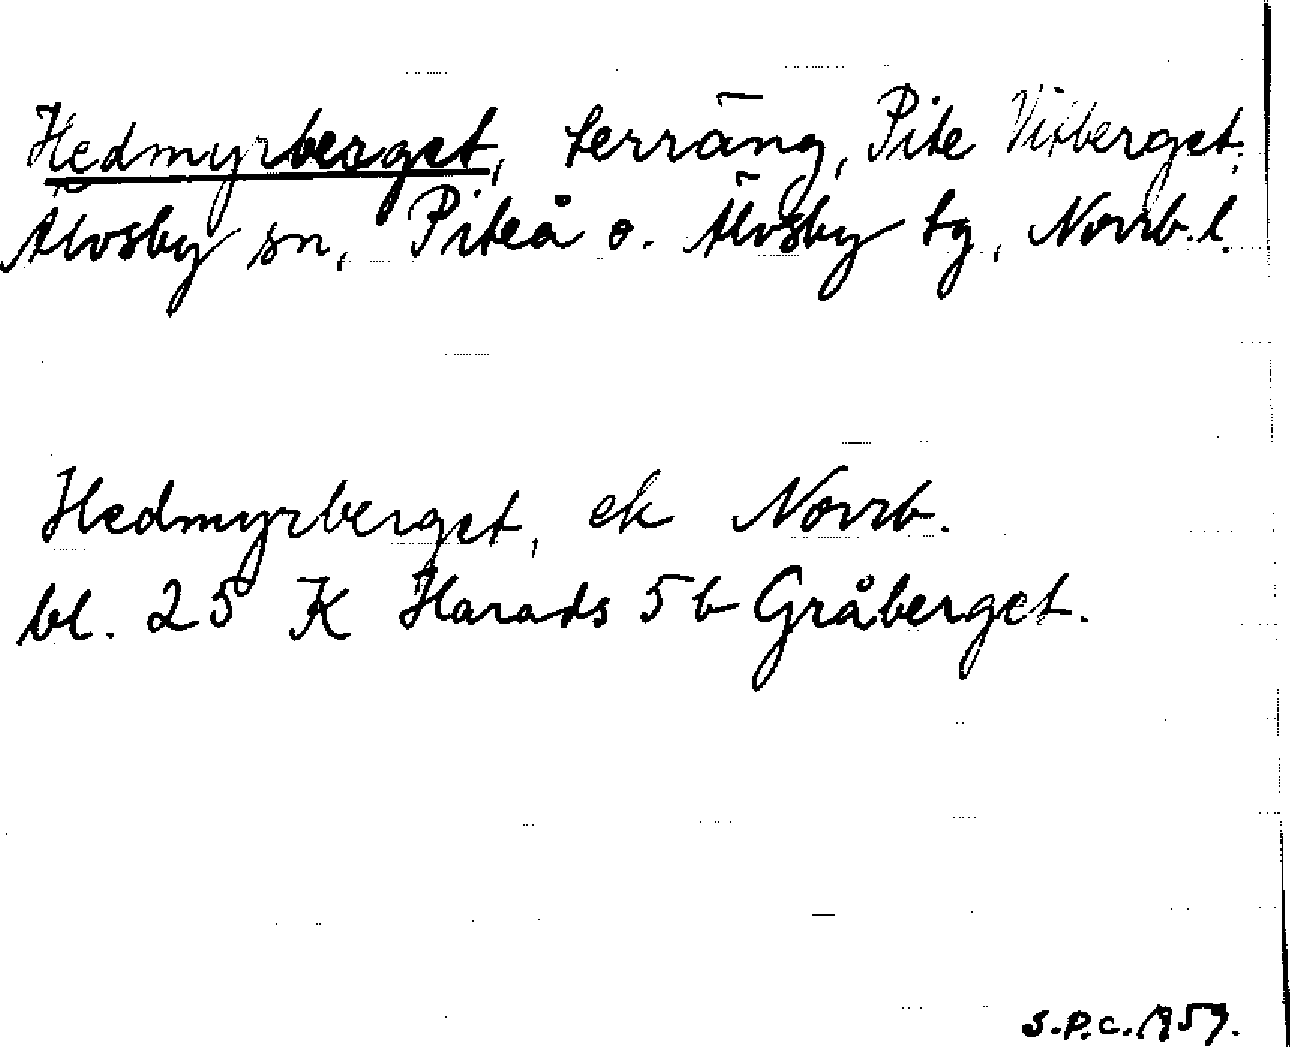 Hedmyrberget, terräng, Pite Vitberget,
Älvsby sn, Piteå o. Älvsby tg, Norrb.l.
Hedmyrberget, ek Norrb.
bl. 25 K Harads 5 b Gråberget.
S.P.C. 1957.